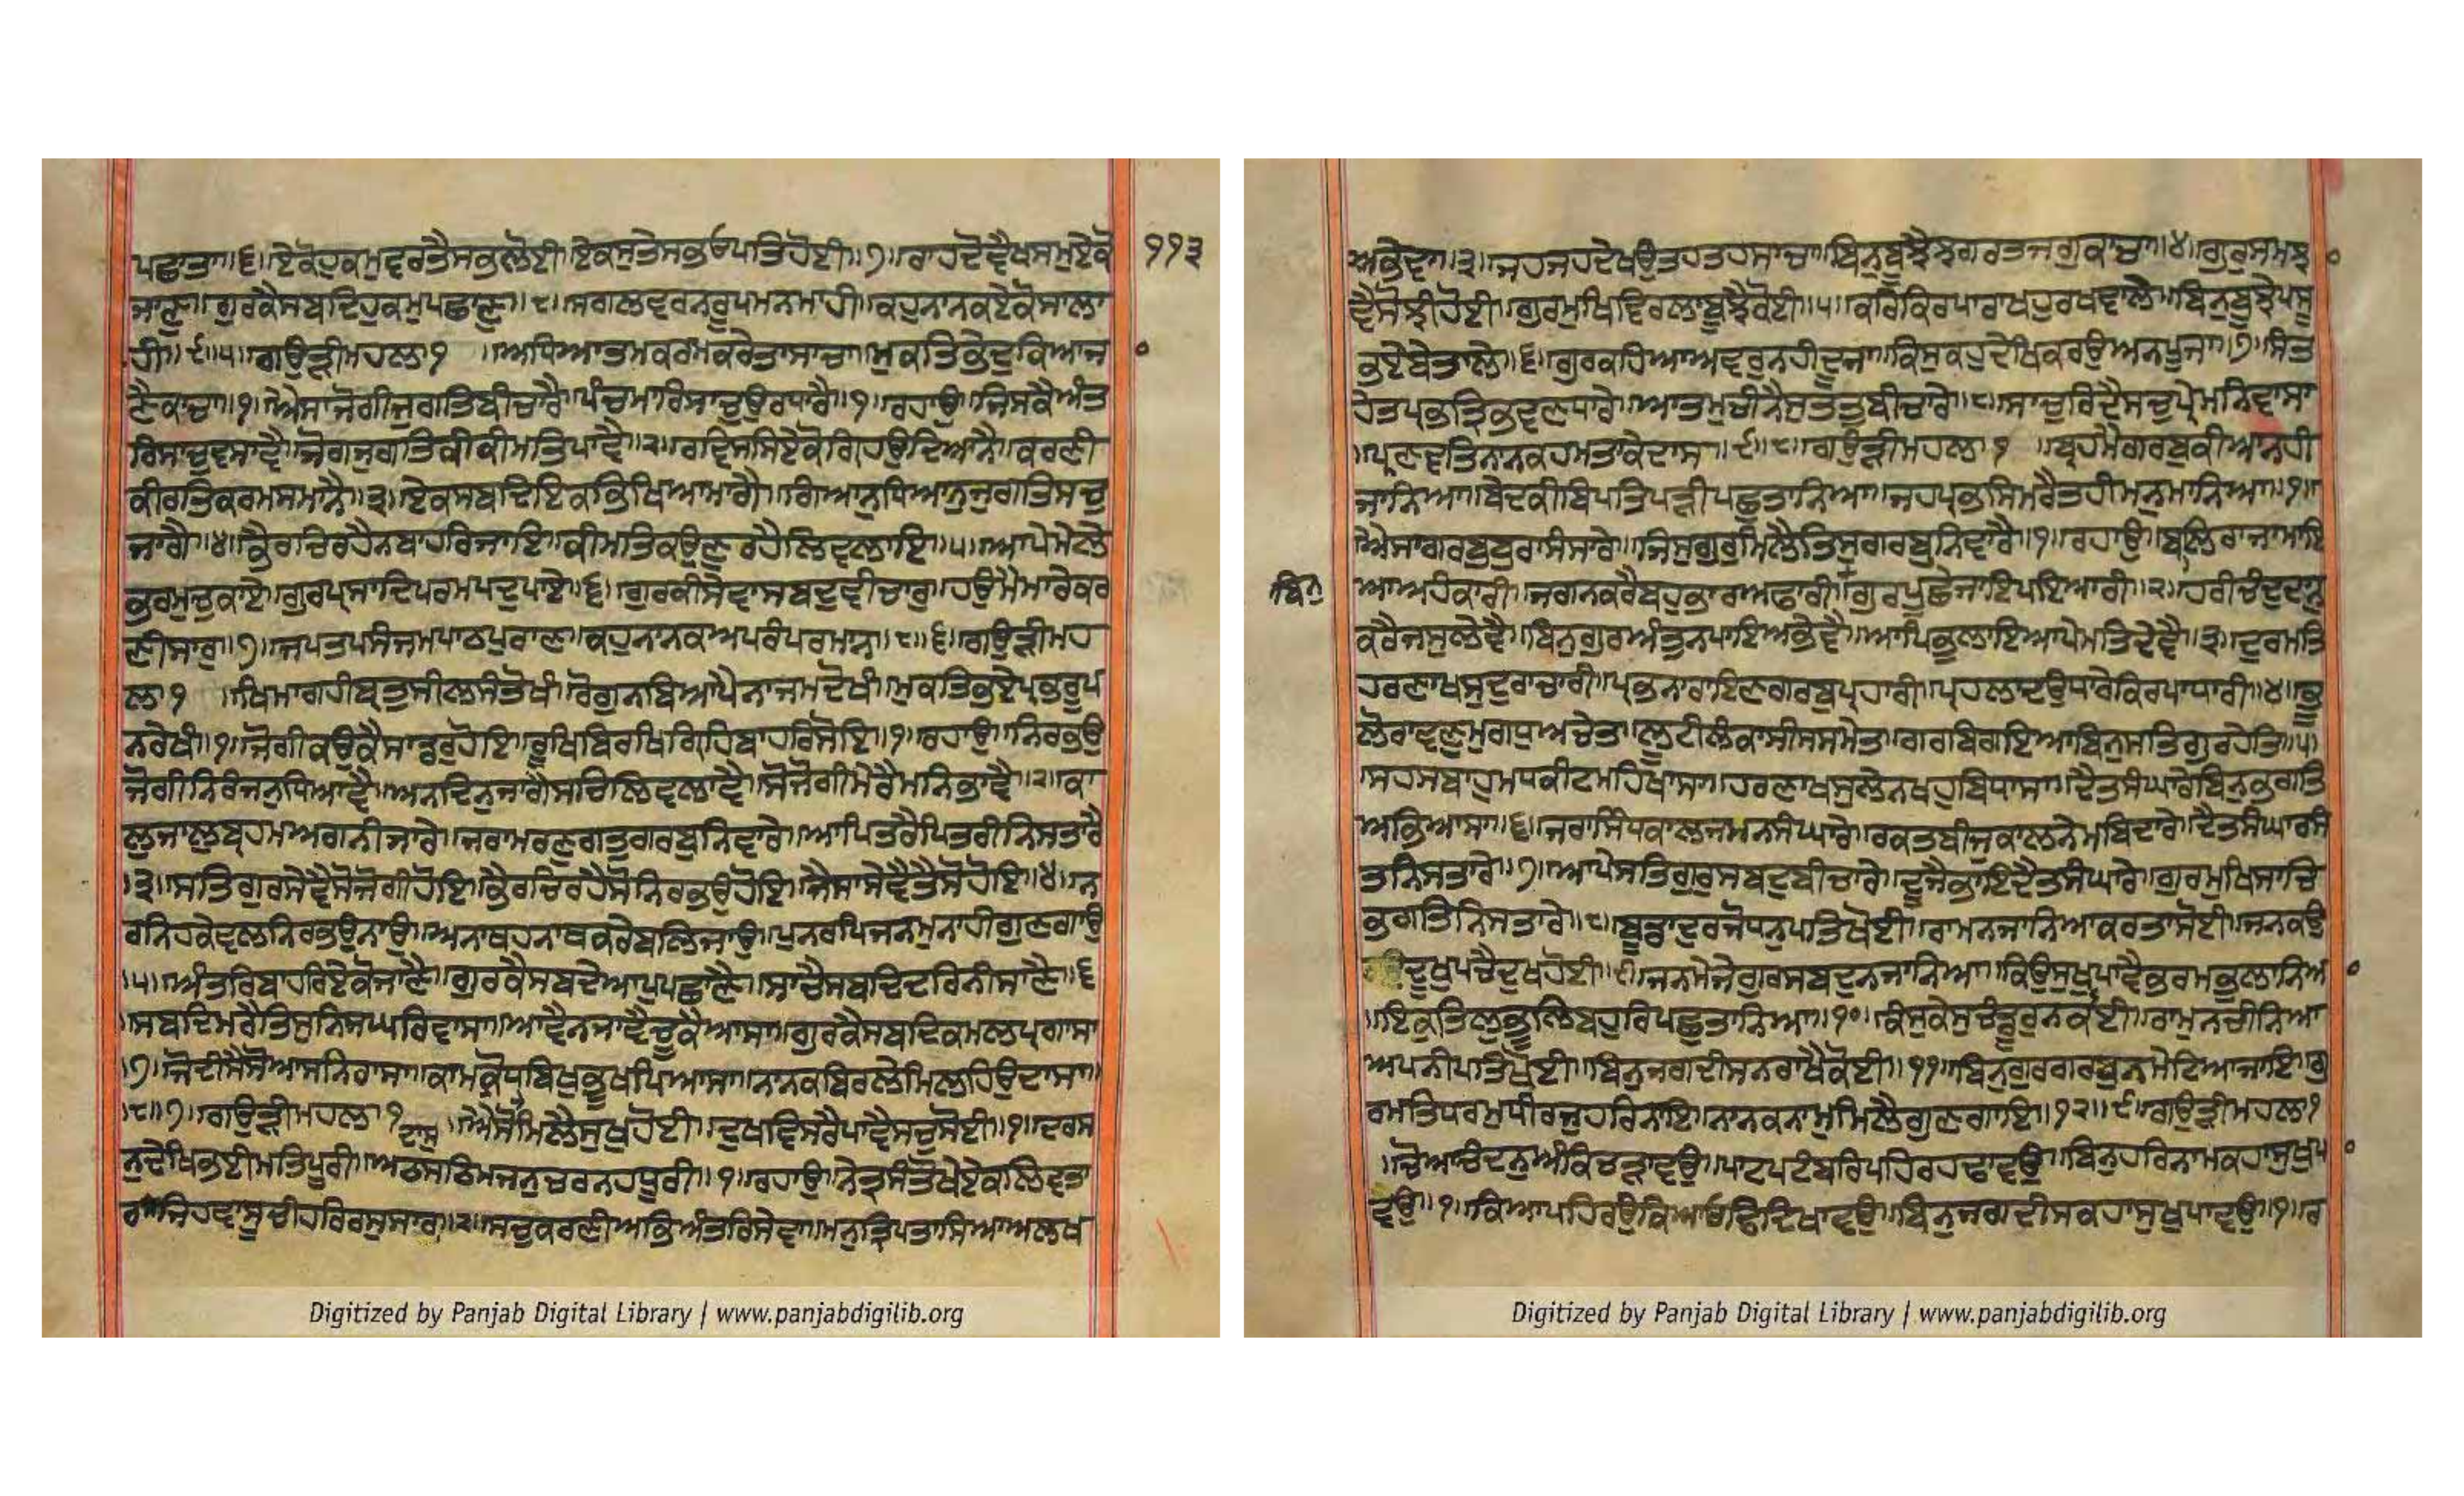 ਪਛਾਤਾ॥੬॥ਏਕੋਹੁਕਮੁਵਰਤੈਸਭਲੋਈ॥ਏਕਸੁਤੇਸਭਓਪਤਿਹੋਈ॥੭॥ਰਾਹਦੋਵੈਖਸਮੁਏਕੋ
ਜਾਣੁ॥ਗੁਰਕੈਸਬਦਿਹੁਕਮੁਪਛਾਣੁ॥੮॥ਸਗਲਵਰਨਰੂਪਮਨਮਾਹੀ॥ਕਹੁਨਾਨਕਏਕੋਸਾਲਾ
ਹੀ॥੯॥੫॥ਗਉੜੀਮਹਲਾ੧ ॥ਅਧਿਆਤਮਕਰਮਕਰੇਤਾਸਾਚਾ॥ਮੁਕਤਿਭੇਦੁਕਿਆਜਾ
ਣੈਕਾਚਾ॥੧॥ਐਸਾਜੋਗੀਜੁਗਤਿਬੀਚਾਰੈ॥ਪੰਚਮਾਰਿਸਾਚੁਉਰਧਾਰੈ॥੧॥ਰਹਾਉ॥ਜਿਸਕੈਅੰਤ
ਰਿਸਾਚੁਵਸਾਵੈ॥ਜੋਗਜੁਗਤਿਕੀਕੀਮਤਿਪਾਵੈ॥੨॥ਰਵਿਸਸਿਏਕੋਗ੍ਰਿਹਉਦਿਆਨੈ॥ਕਰਣੀ
ਕੀਰਤਿਕਰਮਸਮਾਨੈ॥੩॥ਏਕਸਬਦਿਇਕਭਿਖਿਆਮਾਗੈ॥ਗਿਆਨੁਧਿਆਨੁਜੁਗਤਿਸਚੁ
ਜਾਗੈ॥੪॥ਭੈਰਚਿਰਹੈਨਬਾਹਰਿਜਾਇ॥ਕੀਮਤਿਕਉਣੁਰਹੈਲਿਵਲਾਇ॥੫॥ਆਪੇਮੇਲੇ
ਭਰਮੁਚੁਕਾਏ॥ਗੁਰਪ੍ਰਸਾਦਿਪਰਮਪਦੁਪਾਏ॥੬॥ਗੁਰਕੀਸੇਵਾਸਬਦੁਵੀਚਾਰੁ॥ਹਉਮੈਮਾਰੇਕਰ
ਣੀਸਾਰੁ॥੭॥ਜਪਤਪਸੰਜਮਪਾਠਪੁਰਾਣੁ॥ਕਹੁਨਾਨਕਅਪਰੰਪਰਮਾਨੁ॥੮॥੬॥ਗਉੜੀਮਹ
ਲਾ੧ ॥ਖਿਮਾਗਹੀਬ੍ਰਤੁਸੀਲਸੰਤੋਖੰ॥ਰੋਗੁਨਬਿਆਪੈਨਾਜਮਦੋਖੰ॥ਮੁਕਤਿਭਏਪ੍ਰਭਰੂਪ
ਨਰੇਖੰ॥੧॥ਜੋਗੀਕਉਕੈਸਾਡਰੁਹੋਇ॥ਰੂਖਿਬਿਰਖਿਗ੍ਰਿਹਿਬਾਹਰਿਸੋਇ॥੧॥ਰਹਾਉ॥ਨਿਰਭਉ
ਜੋਗੀਨਿਰੰਜਨੁਧਿਆਵੈ॥ਅਨਦਿਨੁਜਾਗੈਸਚਿਲਿਵਲਾਵੈ॥ਸੋਜੋਗੀਮੇਰੈਮਨਿਭਾਵੈ॥੨॥ਕਾ
ਲੁਜਾਲੁਬ੍ਰਹਮਅਗਨੀਜਾਰੇ॥ਜਰਾਮਰਣਗਤੁਗਰਬੁਨਿਵਾਰੇ॥ਆਪਿਤਰੈਪਿਤਰੀਨਿਸਤਾਰੈ
।੩॥ਸਤਿਗੁਰਸੇਵੈਸੋਜੋਗੀਹੋਇ॥ਭੈਰਚਿਰਹੈਸੋਨਿਰਭਉਹੋਇ॥ਜੈਸਾਸੇਵੈਤੈਸੋਹੋਇ॥੪॥ਨ
ਰਨਿਹਕੇਵਲਨਿਰਭਉਨਾਉ॥ਅਨਾਥਹਨਾਥਕਰੇਬਲਿਜਾਉ॥ਪੁਨਰਪਿਜਨਮੁਨਾਹੀਗੁਣਗਾਉ
।੫॥ਅੰਤਰਿਬਾਹਰਿਏਕੋਜਾਣੈ॥ਗੁਰਕੈਸਬਦੇਆਪੁਪਛਾਣੈ॥ਸਾਚੈਸਬਦਿਦਰਿਨੀਸਾਣੈ॥੬
।ਸਬਦਿਮਰੈਤਿਸੁਨਿਜਘਰਿਵਾਸਾ॥ਆਵੈਨਜਾਵੈਚੂਕੈਆਸਾ॥ਗੁਰਕੈਸਬਦਿਕਮਲੁਪ੍ਰਗਾਸਾ
।੭॥ਜੋਦੀਸੈਸੋਆਸਨਿਰਾਸਾ॥ਕਾਮਕ੍ਰੋਧੁਬਿਖੁਭੂਖਪਿਆਸਾ॥ਨਾਨਕਬਿਰਲੇਮਿਲਹਿਉਦਾਸਾ॥
।੮॥੭॥ਗਉੜੀਮਹਲਾ੧ ॥ਐਸੋਦਾਸੁਮਿਲੈਸੁਖੁਹੋਈ॥ਦੁਖੁਵਿਸਰੈਪਾਵੈਸਚੁਸੋਈ॥੧॥ਦਰਸ
ਨੁਦੇਖਿਭਈਮਤਿਪੂਰੀ॥ਅਠਸਠਿਮਜਨੁਚਰਨਹਧੂਰੀ॥੧॥ਰਹਾਉ॥ਨੇਤ੍ਰਸੰਤੋਖੇਏਕਲਿਵਤਾ
ਰਾ॥ਜਿਹਵਾਸੂਚੀਹਰਿਰਸੁਸਾਰਾ॥੨॥ਸਚੁਕਰਣੀਅਭਿਅੰਤਰਿਸੇਵਾ॥ਮਨੁਤ੍ਰਿਪਤਾਸਿਆਅਲਖ
੧੧੩
Digitized by Panjab Digital Library | www.panjabdigilib.org
ਅਭੇਵਾ॥੩॥ਜਹਜਹਦੇਖਉਤਹਤਹਸਾਚਾ॥ਬਿਨੁਬੂਝੈਝਗਰਤਜਗੁਕਾਚਾ॥੪॥ਗੁਰੁਸਮਝਾ
ਵੈਸੋਝੀਹੋਈ॥ਗੁਰਮੁਖਿਵਿਰਲਾਬੂਝੈਕੋਈ॥੫॥ਕਰਿਕਿਰਪਾਰਾਖਹੁਰਖਵਾਲੇ॥ਬਿਨੁਬੂਝੇਪਸੂ
ਭਏਬੇਤਾਲੇ॥੬॥ਗੁਰਕਹਿਆਅਵਰੁਨਹੀਦੂਜਾ॥ਕਿਸੁਕਹੁਦੇਖਿਕਰਉਅਨਪੂਜਾ॥੭॥ਸੰਤ
ਹੇਤਪ੍ਰਭਤ੍ਰਿਭਵਣਧਾਰੇ॥ਆਤਮੁਚੀਨੈਸੁਤਤੁਬੀਚਾਰੇ॥੮॥ਸਾਚੁਰਿਦੈਸਚੁਪ੍ਰੇਮਨਿਵਾਸਾ
॥ਪ੍ਰਣਵਤਿਨਾਨਕਹਮਤਾਕੇਦਾਸਾ॥੯॥੮॥ਗਉੜੀਮਹਲਾ੧ ॥ਬ੍ਰਹਮੈਗਰਬੁਕੀਆਨਹੀ
ਜਾਨਿਆ॥ਬੇਦਕੀਬਿਪਤਿਪੜੀਪਛੁਤਾਨਿਆ॥ਜਹਪ੍ਰਭਸਿਮਰੇਤਹੀਮਨੁਮਾਨਿਆ॥੧॥
ਐਸਾਗਰਬੁਬੁਰਾਸੰਸਾਰੇ॥ਜਿਸੁਗੁਰੁਮਿਲੈਤਿਸੁਗਰਬੁਨਿਵਾਰੈ॥੧॥ਰਹਾਉ॥ਬਲਿਰਾਜਾਮਾਇ
ਆਅਹੰਕਾਰੀ॥ਜਗਨਕਰੈਬਹੁਭਾਰਅਫਾਰੀ॥ਗੁਰਪੂਛੇਜਾਇਪਇਆਰੀ॥੨॥ਹਰੀਚੰਦੁਦਾਨੁ
ਬਿਨੁ
ਕਰੈਜਸੁਲੇਵੈ॥ਬਿਨੁਗੁਰਅੰਤੁਨਪਾਇਅਭੇਵੈ॥ਆਪਿਭੁਲਾਇਆਪੇਮਤਿਦੇਵੈ॥੩॥ਦੁਰਮਤਿ
ਹਰਣਾਖਸੁਦੁਰਾਚਾਰੀ॥ਪ੍ਰਭੁਨਾਰਾਇਣਗਰਬੁਪ੍ਰਹਾਰੀ॥ਪ੍ਰਹਲਾਦਉਧਾਰੇਕਿਰਪਾਧਾਰੀ॥੪॥ਭੂ
ਲੋਰਾਵਣੁਮੁਗਧੁਅਚੇਤਾ॥ਲੂਟੀਲੰਕਾਸੀਸਸਮੇਤਾ॥ਗਰਬਿਗਇਆਬਿਨੁਸਤਿਗੁਰਹੇਤਿ॥੫॥
।ਸਹਸਬਾਹੁਮਧਕੀਟਮਹਿਖਾਸਾ॥ਹਰਣਾਖਸੁਲੇਨਖਹੁਬਿਧਾਸਾ॥ਦੈਤਸੰਘਾਰੇਬਿਨੁਭਗਤਿ
ਅਭਿਆਸਾ॥੬॥ਜਰਾਸੰਧਿਕਾਲਜਮਨਸੰਘਾਰੇ॥ਰਕਤਬੀਜੁਕਾਲਨੇਮਬਿਦਾਰੇ॥ਦੈਤਸੰਘਾਰਸੰ
ਤਨਿਸਤਾਰੇ॥੭॥ਆਪੇਸਤਿਗੁਰੁਸਬਦੁਬੀਚਾਰੇ॥ਦੂਜੈਭਾਇਦੈਤਸੰਘਾਰੇ॥ਗੁਰਮੁਖਿਸਾਚਿ
ਭਗਤਿਨਿਸਤਾਰੇ॥੮॥ਬੂਡਾਦੁਰਜੋਧਨੁਪਤਿਖੋਈ॥ਰਾਮਨਜਾਨਿਆਕਰਤਾਸੋਈ॥ਜਨਕਉ
ਦੂਖਪਚੈਦੁਖਹੋਈ॥੯॥ਜਨਮੇਜੇਗੁਰਸਬਦੁਨਜਾਨਿਆ॥ਕਿਉਸੁਖੁਪਾਵੈਭਰਮਭੁਲਾਨਿਆ
॥ਇਕੁਤਿਲੁਭੂਲੇਬਹੁਰਿਪਛੁਤਾਨਿਆ॥੧੦॥ਕੰਸੁਕੇਸੁਚੰਡੂਰੁਨਕੋਈ॥ਰਾਮੁਨਚੀਨਿਆ
ਅਪਨੀਪਤਿਖੋਈ॥ਬਿਨੁਜਗਦੀਸਨਰਾਖੈਕੋਈ॥੧੧॥ਬਿਨੁਗੁਰਗਰਬੁਨਮੇਟਿਆਜਾਇ॥ਗੁ
ਰਮਤਿਧਰਮੁਧੀਰਜੁਹਰਿਨਾਇ॥ਨਾਨਕਨਾਮੁਮਿਲੈਗੁਣਗਾਇ॥੧੨॥੯॥ਗਉੜੀਮਹਲਾ੧
।ਚੋਆਚੰਦਨੁਅੰਕਿਚੜਾਵਉ॥ਪਾਟਪਟੰਬਰਪਹਿਰਿਹਢਾਵਉ॥ਬਿਨੁਹਰਿਨਾਮਕਹਾਸੁਖੁਪਾ
ਵਉ॥੧॥ਕਿਆਪਹਿਰਉਕਿਆਓਢਿਦਿਖਾਵਉ॥ਬਿਨੁਜਗਦੀਸਕਹਾਸੁਖੁਪਾਵਉ॥੧॥ਰ
Digitized by Panjab Digital Library | www.panjabdigilib.org